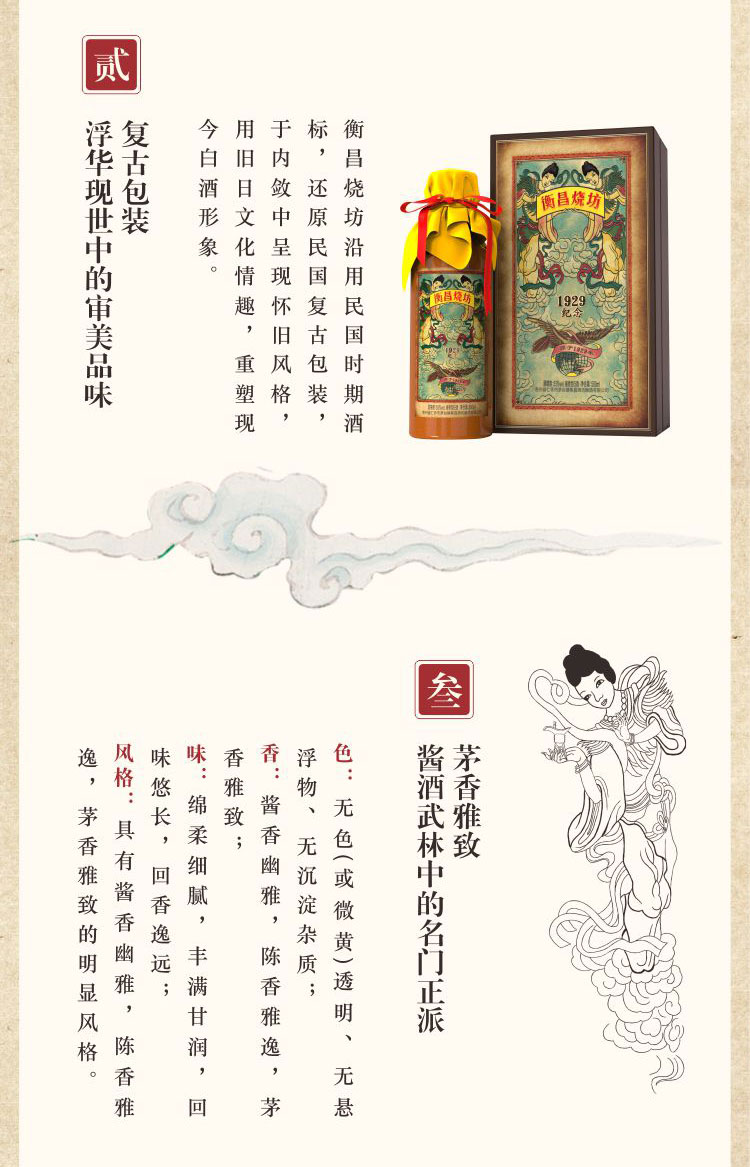 贰
复古包装
浮华现世中的审美品味
衡昌烧坊沿用民国时期酒
标，还原民国复古包装，
于内敛中呈现怀旧风格，
用旧日文化情趣，重塑现
今白酒形象。
衡昌烧坊
1929
纪念
衡昌烧坊
1929
叁
茅香雅致
酱酒武林中的名门正派
色：无色(或微黄)透明、无悬
浮物、无沉淀杂质；
香：酱香幽雅，陈香雅逸，茅
香雅致；
味：绵柔细腻，丰满甘润，回
味悠长，回香逸远；
风格：具有酱香幽雅，陈香雅
逸，茅香雅致的明显风格。